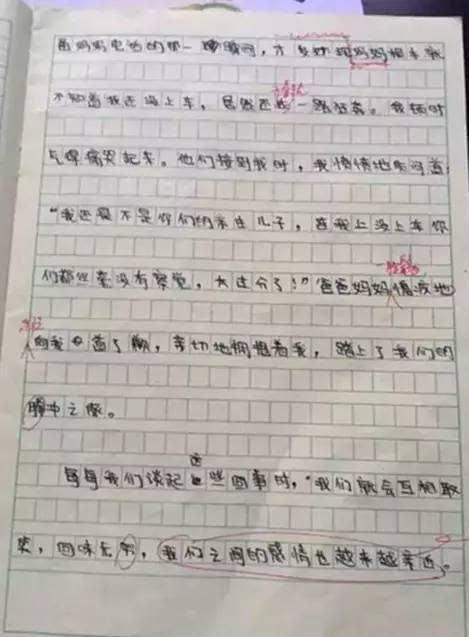 妈妈电话的那一瞬间，才发现妈妈根本就
不知道我还没上车，居然还一路狂奔。我顿时
气得痛哭起来。他们接到我时，我愤愤地质问道
“我还是不是你们的亲生儿子，连我上没上车你
们都丝毫没有察觉，太过分了！”爸爸妈妈愧疚地
向我道了歉，亲切地拥抱着我，踏上了我们的
之旅。
每每我们谈起这些回事时，“我们就会互相取
笑，回味无穷，我们之间的感情也越来越亲近。